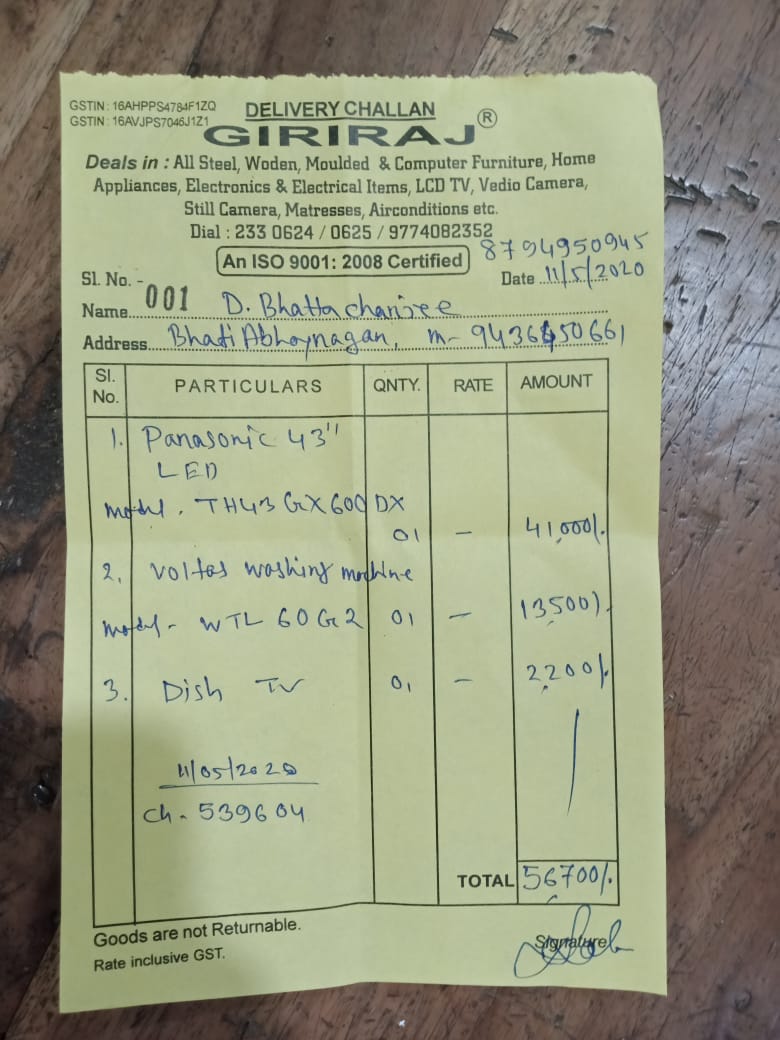 GSTIN : 16AHPPS4784F1ZQ
GSTIN : 16AVJPS7046J1Z1
DELIVERY CHALLAN
GIRIRAJ ®
Deals in : All Steel, Woden, Moulded & Computer Furniture, Home
Appliances, Electronics & Electrical Items, LCD TV, Vedio Camera,
Still Camera, Matresses, Airconditions etc.
Dial : 233 0624 / 0625 / 9774082352
8794950945
An ISO 9001: 2008 Certified
Sl. No. - 001 Date 11/5/2020
Name D. Bhattacharjee
Address Bhati Abhoynagar, m- 9436450661
Sl. No. PARTICULARS QNTY. RATE AMOUNT
1. Panasonic 43"
LED
model. TH43GX600DX
01 – 41,000/-
2. Voltas washing machine
model- WTL 60G2 01 – 13,500/-
3. Dish TV 01 – 2,200/-
11/05/2020
Ch. 539604
TOTAL 56700/-
Goods are not Returnable.
Rate inclusive GST.
Signature